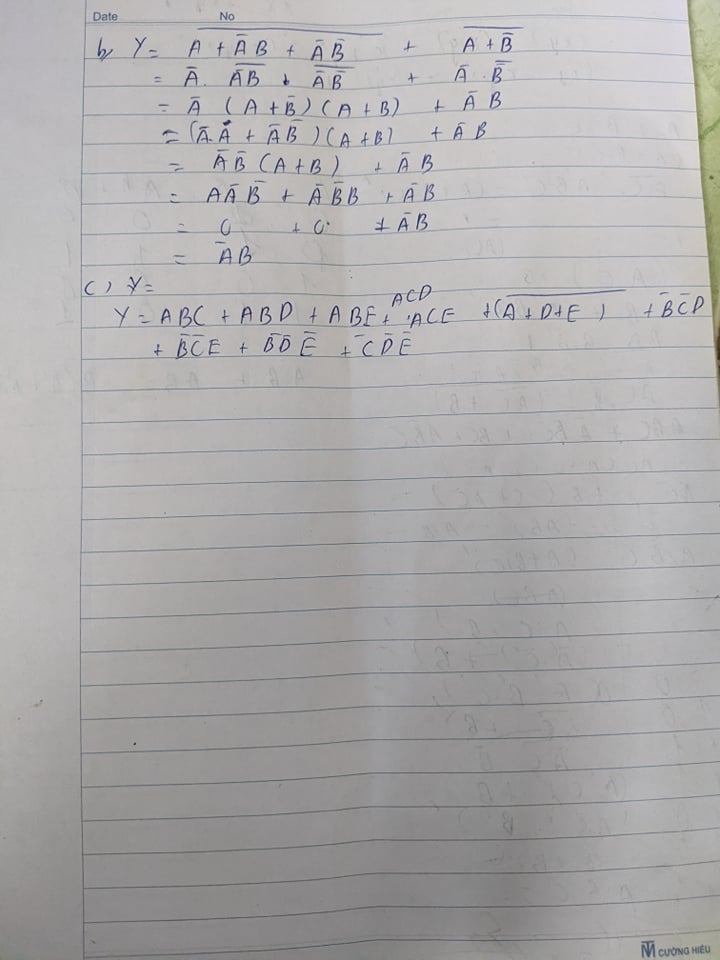 Date No
b, Y = \overline{A + A̅ B + A̅ B̅} + \overline{A + B̅}
= A̅ . \overline{A̅B} . \overline{A̅ B̅} + A̅ . \overline{B̅}
= A̅ (A + B̅) (A + B) + A̅ B
= (A̅.A + A̅B̅) (A + B) + A̅ B
= A̅B̅ (A + B) + A̅ B
= AA̅ B̅ + A̅ B̅ B + A̅B
= 0 + 0 + A̅B
= A̅B
c) Y =
ACD
Y = ABC + ABD + ABE + ACE + \overline{(A + D + E)} + B̅C̅D
+ B̅C̅E + B̅D̅ E̅ + C̅D̅E̅
TM CƯỜNG HIẾU